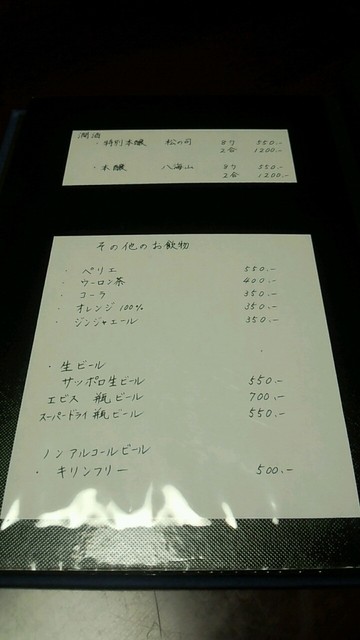 燗酒
・特別本醸 松の司 8勺 550.-
2合 1200.-
・本醸 八海山 8勺 550.-
2合 1200.-
その他のお飲物
・ペリエ 550.-
・ウーロン茶 400.-
・コーラ 350.-
・オレンジ100% 350.-
・ジンジャエール 350.-
・生ビール
サッポロ生ビール 550.-
エビス 瓶ビール 700.-
スーパードライ 瓶ビール 550.-
ノンアルコールビール
・キリンフリー 500.-